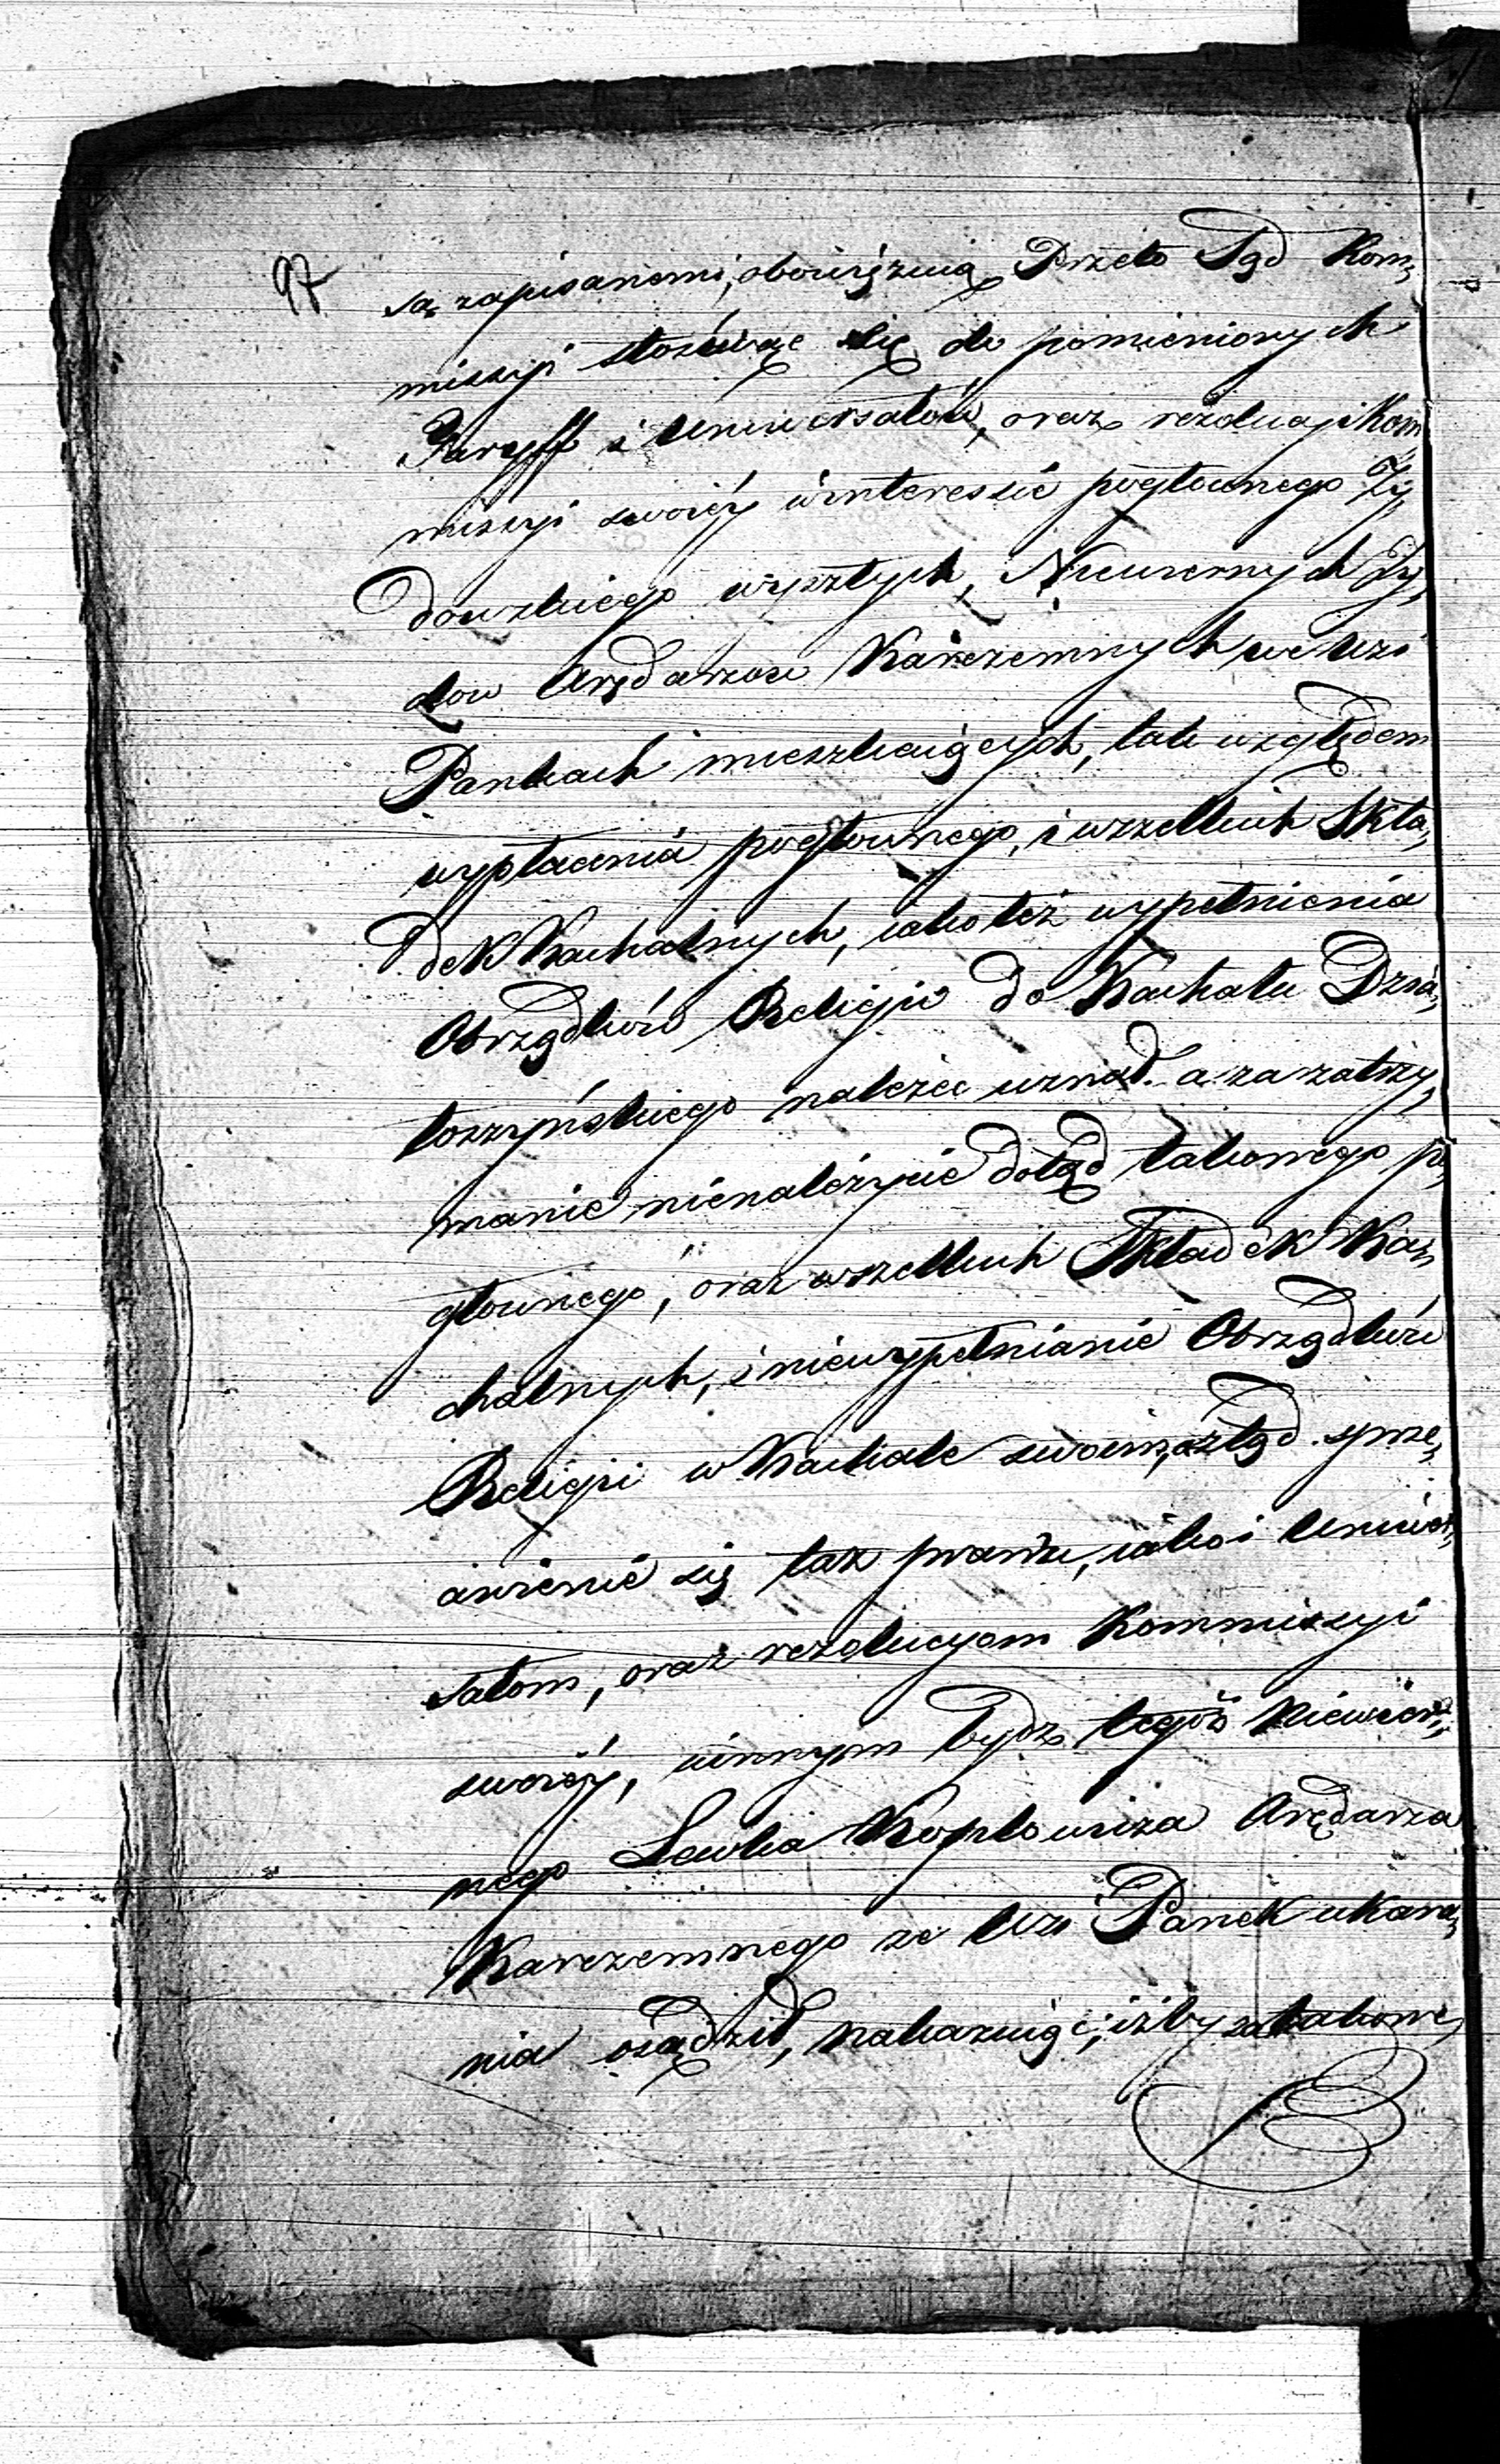 97
są zapisanemi, obowiązuią. Przeto Sąd Kom,
missyi stosuiąc się do pomienionych
Taryff i Uniwersałów, oraz rezolucyi Kom,
missyi swoiéy w interessie pogłownego Ży,
dowskiego wyszłych, Niewiernych Ży,
dow Arędarzow Karczemnych we Wsi
Pankach mieszkaiących, tak względem
wypłacenia pogłownego, i wszelkich Skła,
dek Kachalnych, iako też wypełnienia
Obrządków Religii do Kachału Dzia,
łoszyńskiego należec uznał. a za zatrzy,
manie nienależycie dotąd takowego po,
głownego, oraz wszelkich Składek Ka,
chalnych, i niewypełnianie Obrządków
Religii w Kachale swoim, a ztąd sprze,
ciwienie się tak prawu, iako i Uniwer,
sałom, oraz rezolucyom Kommissyi
swoiéy, winnym bydz tegoż Niewier,
nego Lewka Koplowicza Arędarza
Karczemnego ze Wsi Panek ukara,
nia osądził, nakazuiąc, iżby za takowe,